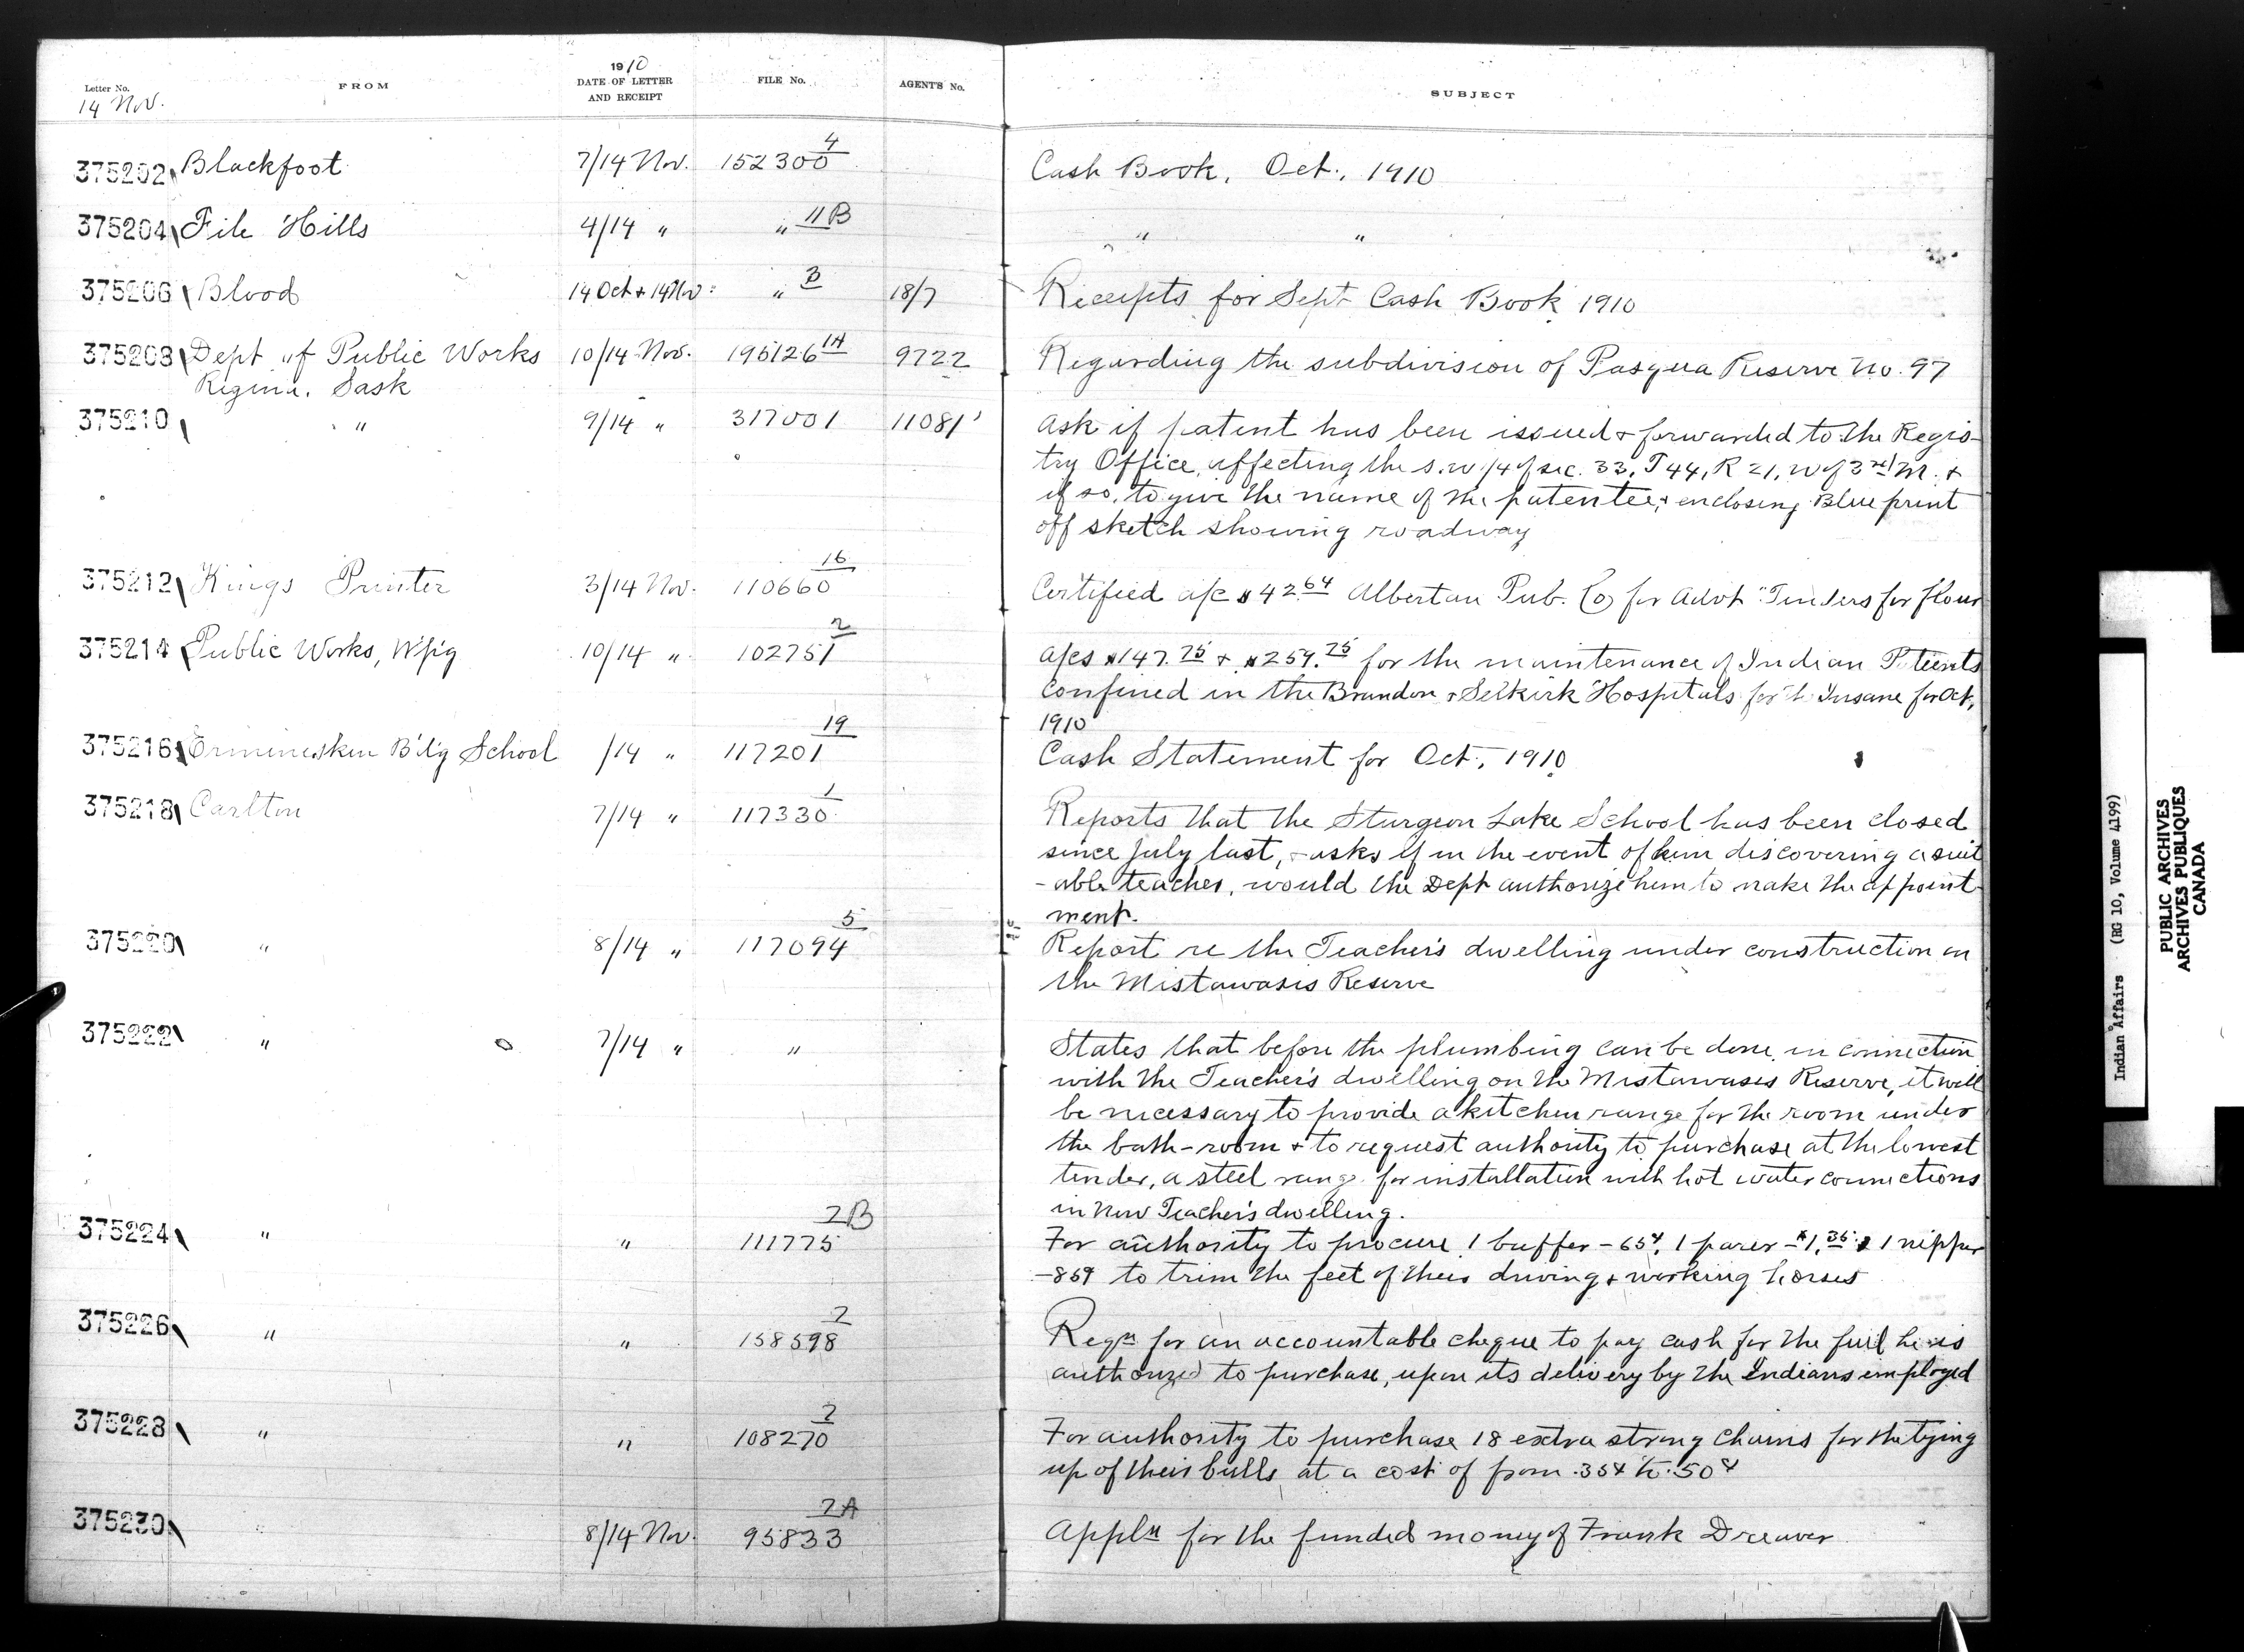 Letter No.
14 Nov.
FROM
1910
DATE OF LETTER
AND RECEIPT
FILE No.
AGENT'S No.
SUBJECT
375202 Blackfoot 7/14 Nov. 152300 4 Cash Book, Oct., 1910
375204 File Hills 4/14 " " 11B " "
375206 Blood 14 Oct + 14 Nov " 3 18/7 Receipts for Sept Cash Book 1910
375208 Dept of Public Works 10/14 Nov. 195126 1A 9722 Regarding the subdivision of Pasqua Reserve No. 97
Regina, Sask
375210 " 9/14 " 317001 11081 Ask if patent has been issued & forwarded to the Regis-
try Office, affecting the S.W 1/4 of sec. 33, T 44, R 21, W of 3rd M. &
if so, to give the name of the patentee, & enclosing Blue print
off sketch showing roadway
375212 Kings Printer 3/14 Nov. 110660 16 Certified a/c $42.64 Albertan Pub. Co for Advt "Tenders for flour
375214 Public Works, W'p'g 10/14 " 102751 2 a/cs $147.75 & $259.75 for the maintenance of Indian Patients
confined in the Brandon & Selkirk Hospitals for the Insane for Oct,
1910
375216 Ermineskin B'd'g School /14 " 117201 19 Cash Statement for Oct., 1910
375218 Carlton 7/14 " 117330 1 Reports that the Sturgeon Lake School has been closed
since July last, & asks if in the event of him discovering a suit
-able teacher, would the Dept authorize him to make the appoint-
ment.
375220 " 8/14 " 117094 5 Report re the Teacher's dwelling under construction on
the Mistawasis Reserve
375222 " 7/14 " " States that before the plumbing can be done in connection
with the Teacher's dwelling on the Mistawasis Reserve, it will
be necessary to provide a kitchen range for the room under
the bath-room & to request authority to purchase at the lowest
tender, a steel range for installation with hot water connections
in New Teacher's dwelling.
375224 " " 111775 2B For authority to procure 1 buffer - 65¢, 1 parer - $1.35 & 1 nipper
-85¢ to trim the feet of their driving & working horses
375226 " " 158598 2 Reqn for an accountable cheque to pay cash for the fuel he is
authorized to purchase, upon its delivery by the Indians employed
375228 " " 108270 2 For authority to purchase 18 extra strong chains for the tying
up of their bulls at a cost of from .35¢ to .50¢
375230 8/14 Nov. 95833 2A Appln for the funded money of Frank Dreaver
Indian Affairs (RG 10, Volume 4199)
PUBLIC ARCHIVES
ARCHIVES PUBLIQUES
CANADA